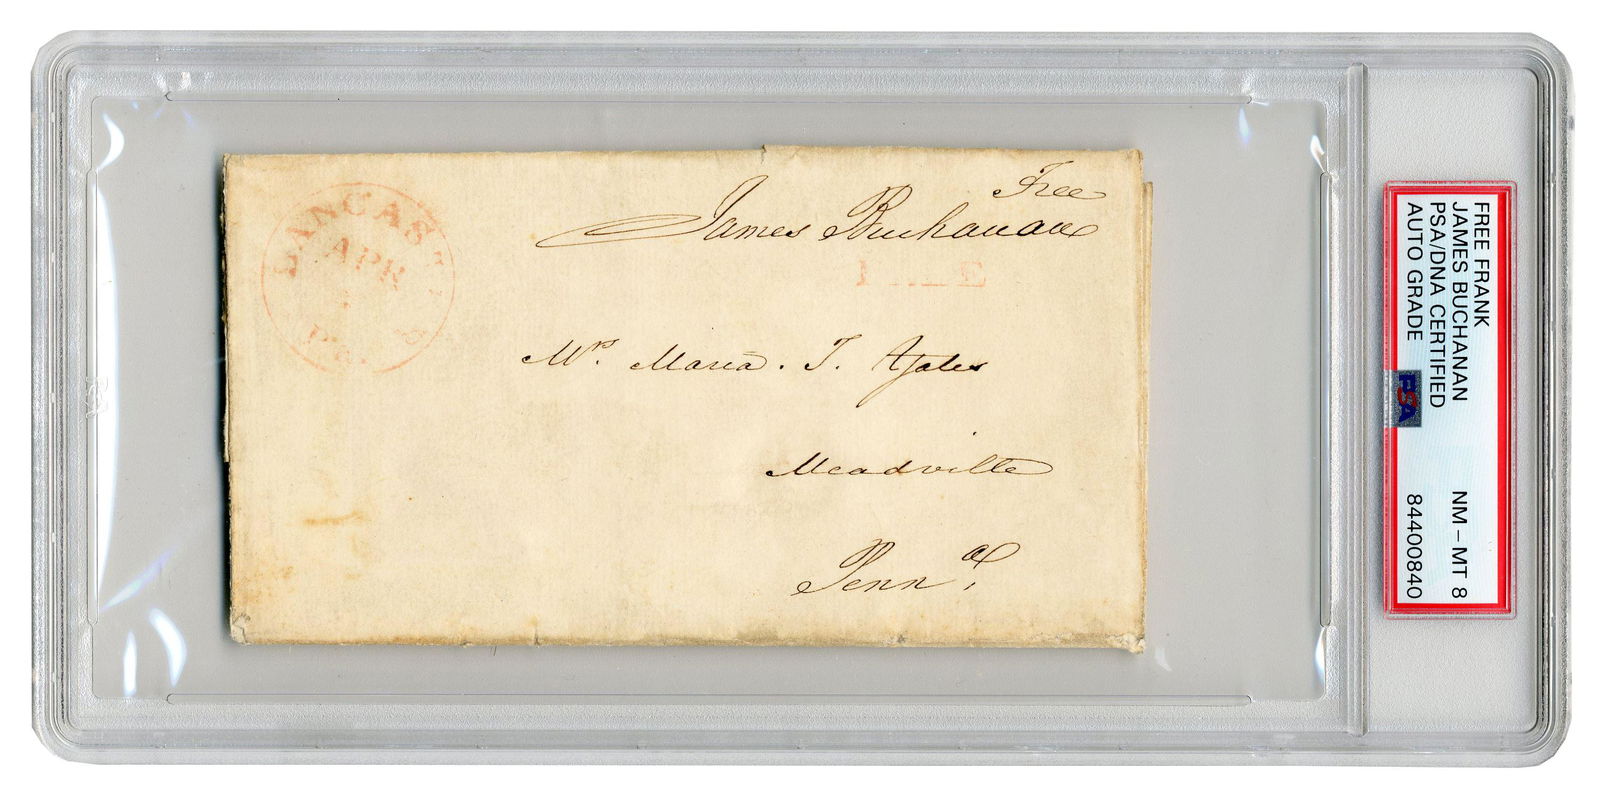 Free
James Buchanan
LANCAST
APR
Mrs. Maria. T. Yates
Meadville
Penna,
FREE FRANK
JAMES BUCHANAN
PSA/DNA CERTIFIED NM – MT 8
AUTO GRADE 84400840
PSA